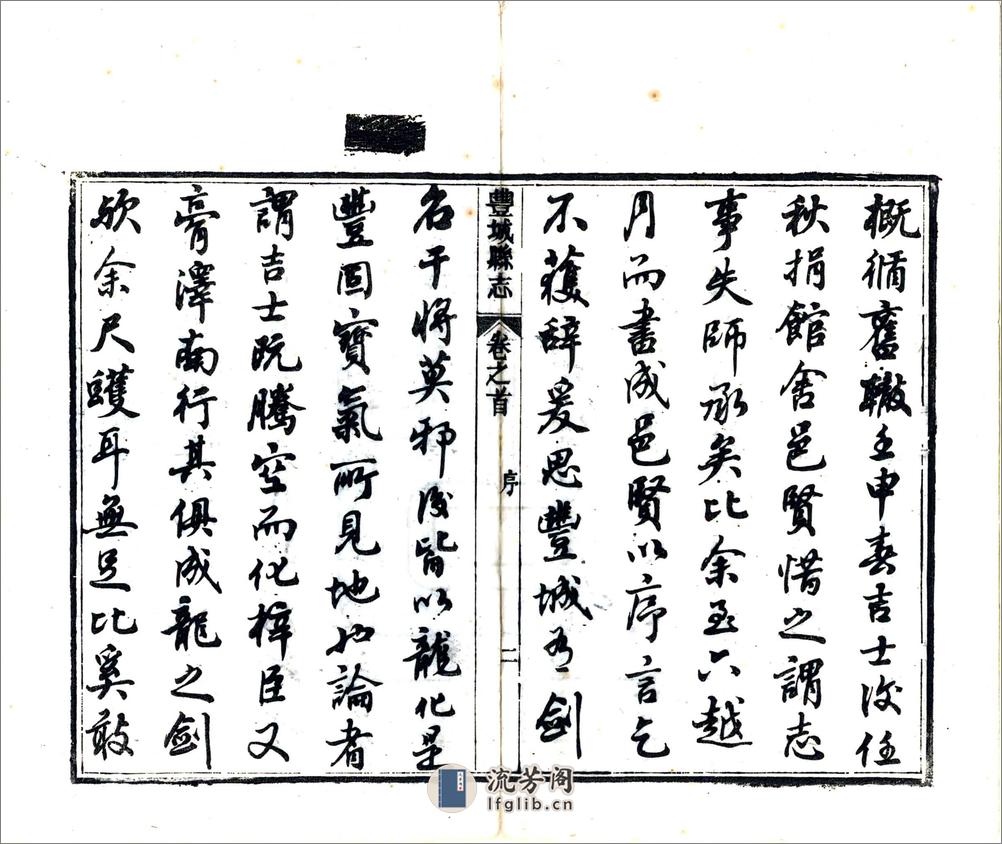 概循舊轍壬申春吉士後任
秋捐館舍邑賢惜之謂志
事失師承矣比余至六越
月而書成邑賢以序言乞
不獲辭爰思豐城有劍
豐城縣志 卷之首 序 二
名干將莫邪後皆以龍化是
豐固寶氣所見地也論者
謂吉士既騰空而化梓臣又
膏澤南行其俱成龍之劍
歟余尺蠖耳無足比奚敢
流芳阁
lfglib.cn